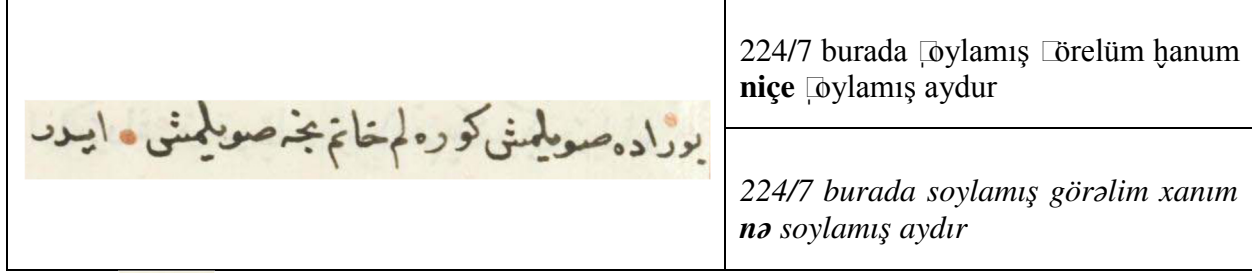 بوراده صويلمش كوره لم خانم نجه صويلمش • ايدر
224/7 burada □̣oylamış □örelüm ḫanum
niçe □̣oylamış aydur
224/7 burada soylamış görəlim xanım
nə soylamış aydır